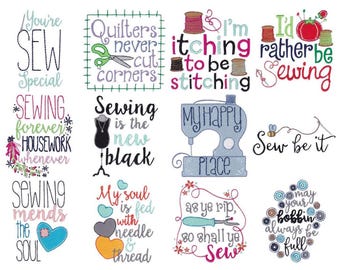 You're
SEW
Special
Quilters
never
cut
corners
I'm
itching
to be
stitching
I'd
rather
be
Sewing
SEWING
forever
HOUSEWORK
whenever
Sewing
is the
new
black
MY HAPPY
PLACE
Sew be it
SEWING
mends
the
SOUL
My soul
is fed
with
needle &
thread
as ye rip,
so shall ye
Sew
may
your
bobbin
always be
full